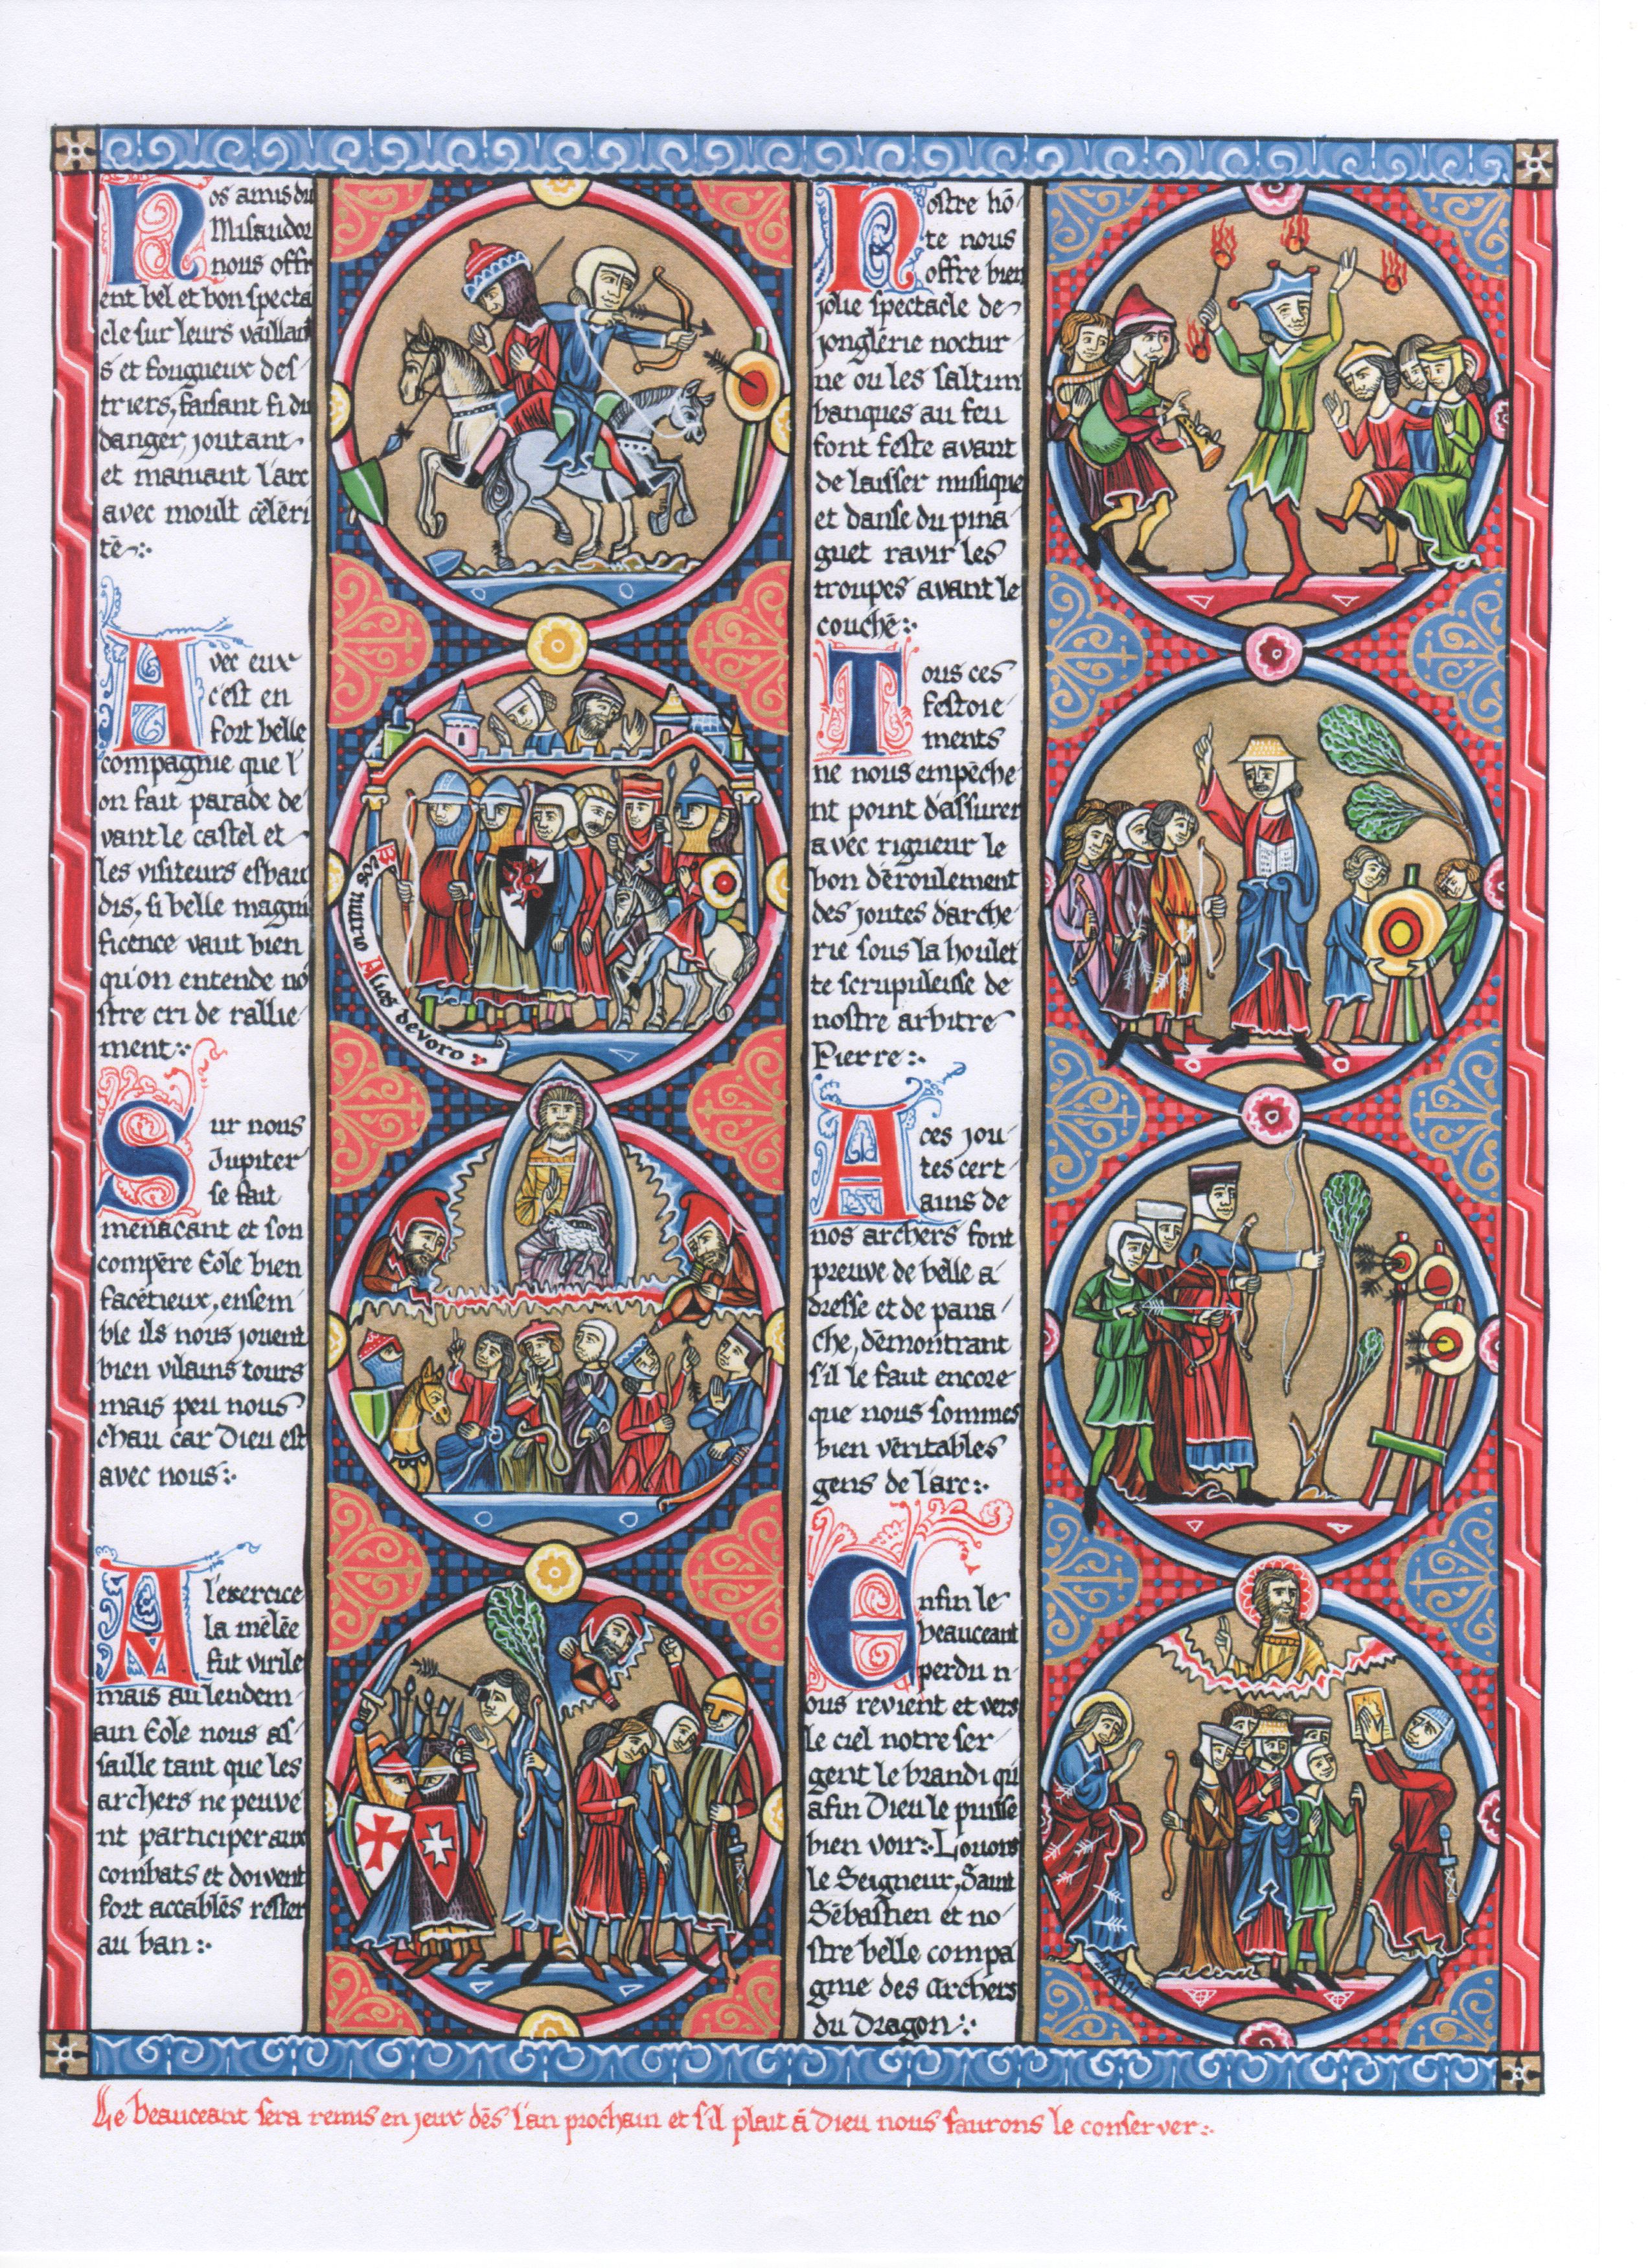 Nos amis du
Misaudor
nous offr
ent bel et bon specta
cle sur leurs vaillan
s et fougueux des
triers, faisant fi du
danger, joutant
et maniant l'arc
avec moult cēlēri
tē
Avec eux
c'est en
fort belle
compagnie que l'
on fait parade de
vant le castel et
les visiteurs esbau
dis, si belle magni
ficence vaut bien
qu'on entende nō
stre cri de rallie
ment
Meos nutro Alios devoro
Sur nous
Jupiter
se fait
menacant et son
compēre Eole bien
facētieux, ensem
ble ils nous jouent
bien vilains tours
mais peu nous
chau car Dieu est
avec nous
A l'exercice
la mēlēe
fut virile
mais au lendem
ain Eole nous as
saille tant que les
archers ne peuve
nt participer aux
combats et doivent
fort accablēs rester
au ban
Nostre hō
te nous
offre bien
jolie spectacle de
jonglerie noctur
ne ou les saltim
banques au feu
font feste avant
de laisser musique
et danse du pina
guet ravir les
troupes avant le
couchē
Tous ces
festoie
ments
ne nous empēche
nt point d'assurer
avēc rigueur le
bon dēroulement
des joutes d'arche
rie sous la houlet
te scrupuleuse de
nostre arbitre
Pierre
A ces jou
tes cert
ains de
nos archers font
preuve de bēlle a
dresse et de pana
che, dēmontrant
s'il le faut encore
que nous sommes
bien vēritables
gens de l'arc
Enfin le
beauceant
perdu n
ous revient et vers
le ciel notre ser
gent le brandi qu
afin Dieu le puisse
bien voir Louons
le Seigneur, Saint
Sēbastien et no
stre belle compa
gnie des archers
du Dragon
Le beauceant sera remis en jeux dēs l'an prochain et s'il plait ā Dieu nous saurons le conserver